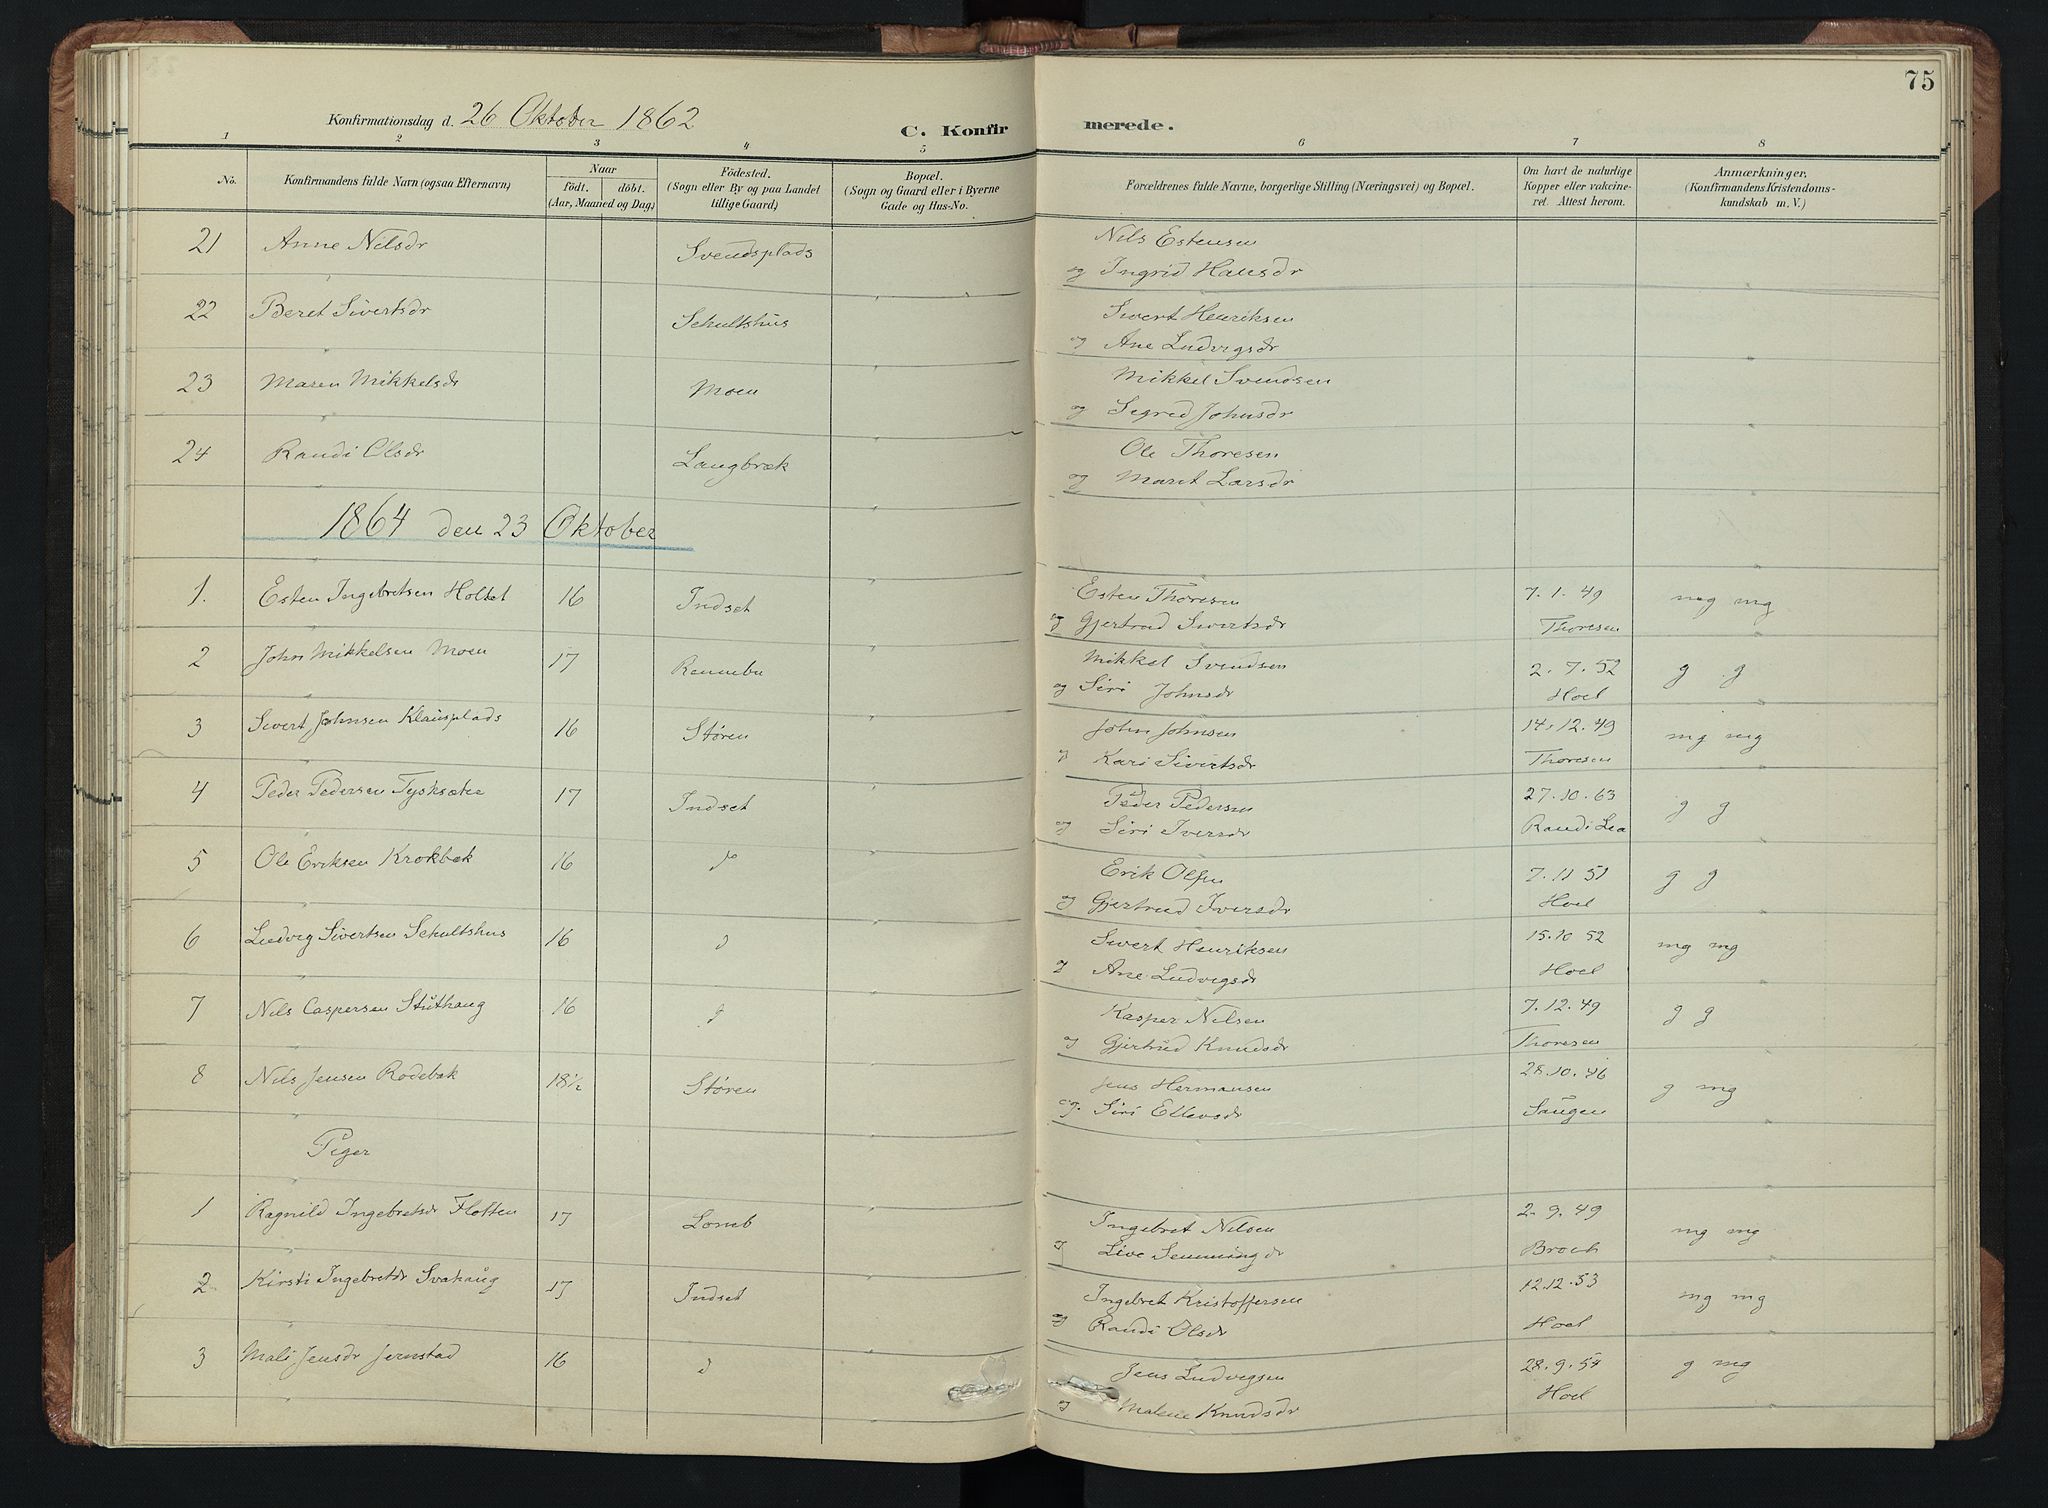 75
Konfirmationsdag d. 26 Oktober 1862
C. Konfirmerede.
1 2 3 4 5 6 7 8
No. Konfirmandens fulde Navn (ogsaa Efternavn)
Naar födt. döbt. (Aar, Maaned og Dag)
Födested. (Sogn eller By og paa Landet tillige Gaard)
Bopæl. (Sogn og Gaard eller i Byerne Gade og Hus-No.
Forældrenes fulde Navne, borgerlige Stilling (Næringsvei) og Bopæl.
Om havt de naturlige Kopper eller vakcineret. Attest herom.
Anmærkninger, (Konfirmandens Kristendomskundskab m. V.)
21 Anne Nilsdr Svendsplads Nils Estensen
og Ingrid Hansdr
22 Beret Sivertsdr Schultshus Sivert Henriksen
og Ane Ludvigsdr
23 Maren Mikkelsdr Moen Mikkel Svendsen
og Sigrid Johnsdr
24 Randi Olsdr Langbræk Ole Thoresen
og Marit Larsdr
1864 den 23 Oktober
1. Esten Ingebretsen Holtet 16 Indset Esten Thoresen 7.1.49 mg mg
og Gjertrud Sivertsdr Thoresen
2 John Mikkelsen Moen 17 Rennebu Mikkel Svendsen 2.7.52 g g
og Siri Johnsdr Hoel
3 Sivert Johnsen Klausplads 16 Støren John Johnsen 14.12.49 mg mg
og Kari Sivertsdr Thoresen
4 Peder Pedersen Tysksæter 17 Indset Peder Pedersen 27.10.63 g g
og Siri Iversdr Randi Lea
5 Ole Eriksen Krokbæk 16 d Erik Olsen 7.11 51 g g
og Gjertrud Iversdr Hoel
6 Ludvig Sivertsen Schultshus 16 d Sivert Henriksen 15.10 52 mg mg
og Ane Ludvigsdr Hoel
7 Nils Caspersen Stuthaug 16 d Kasper Nilsen 7.12.49 g g
og Gjertrud Knudsdr Thoresen
8 Nils Jensen Rodebak 18½ Støren Jens Hermansen 28.10.46 g mg
og Siri Ellevsdr Saugen
Piger
1 Ragnild Ingebretsdr Flotten 17 Lomb Ingebret Nilsen 2.9.49 mg mg
og Live Semmingdr Broch
2 Kirsti Ingebretdr Svahaug 17 Indset Ingebret Kristoffersen 12.12.53 mg mg
og Randi Olsdr Hoel
3 Mali Jensdr Jernstad 16 d Jens Ludvigsen 28.9.54 g mg
og Malene Knudsdr Hoel